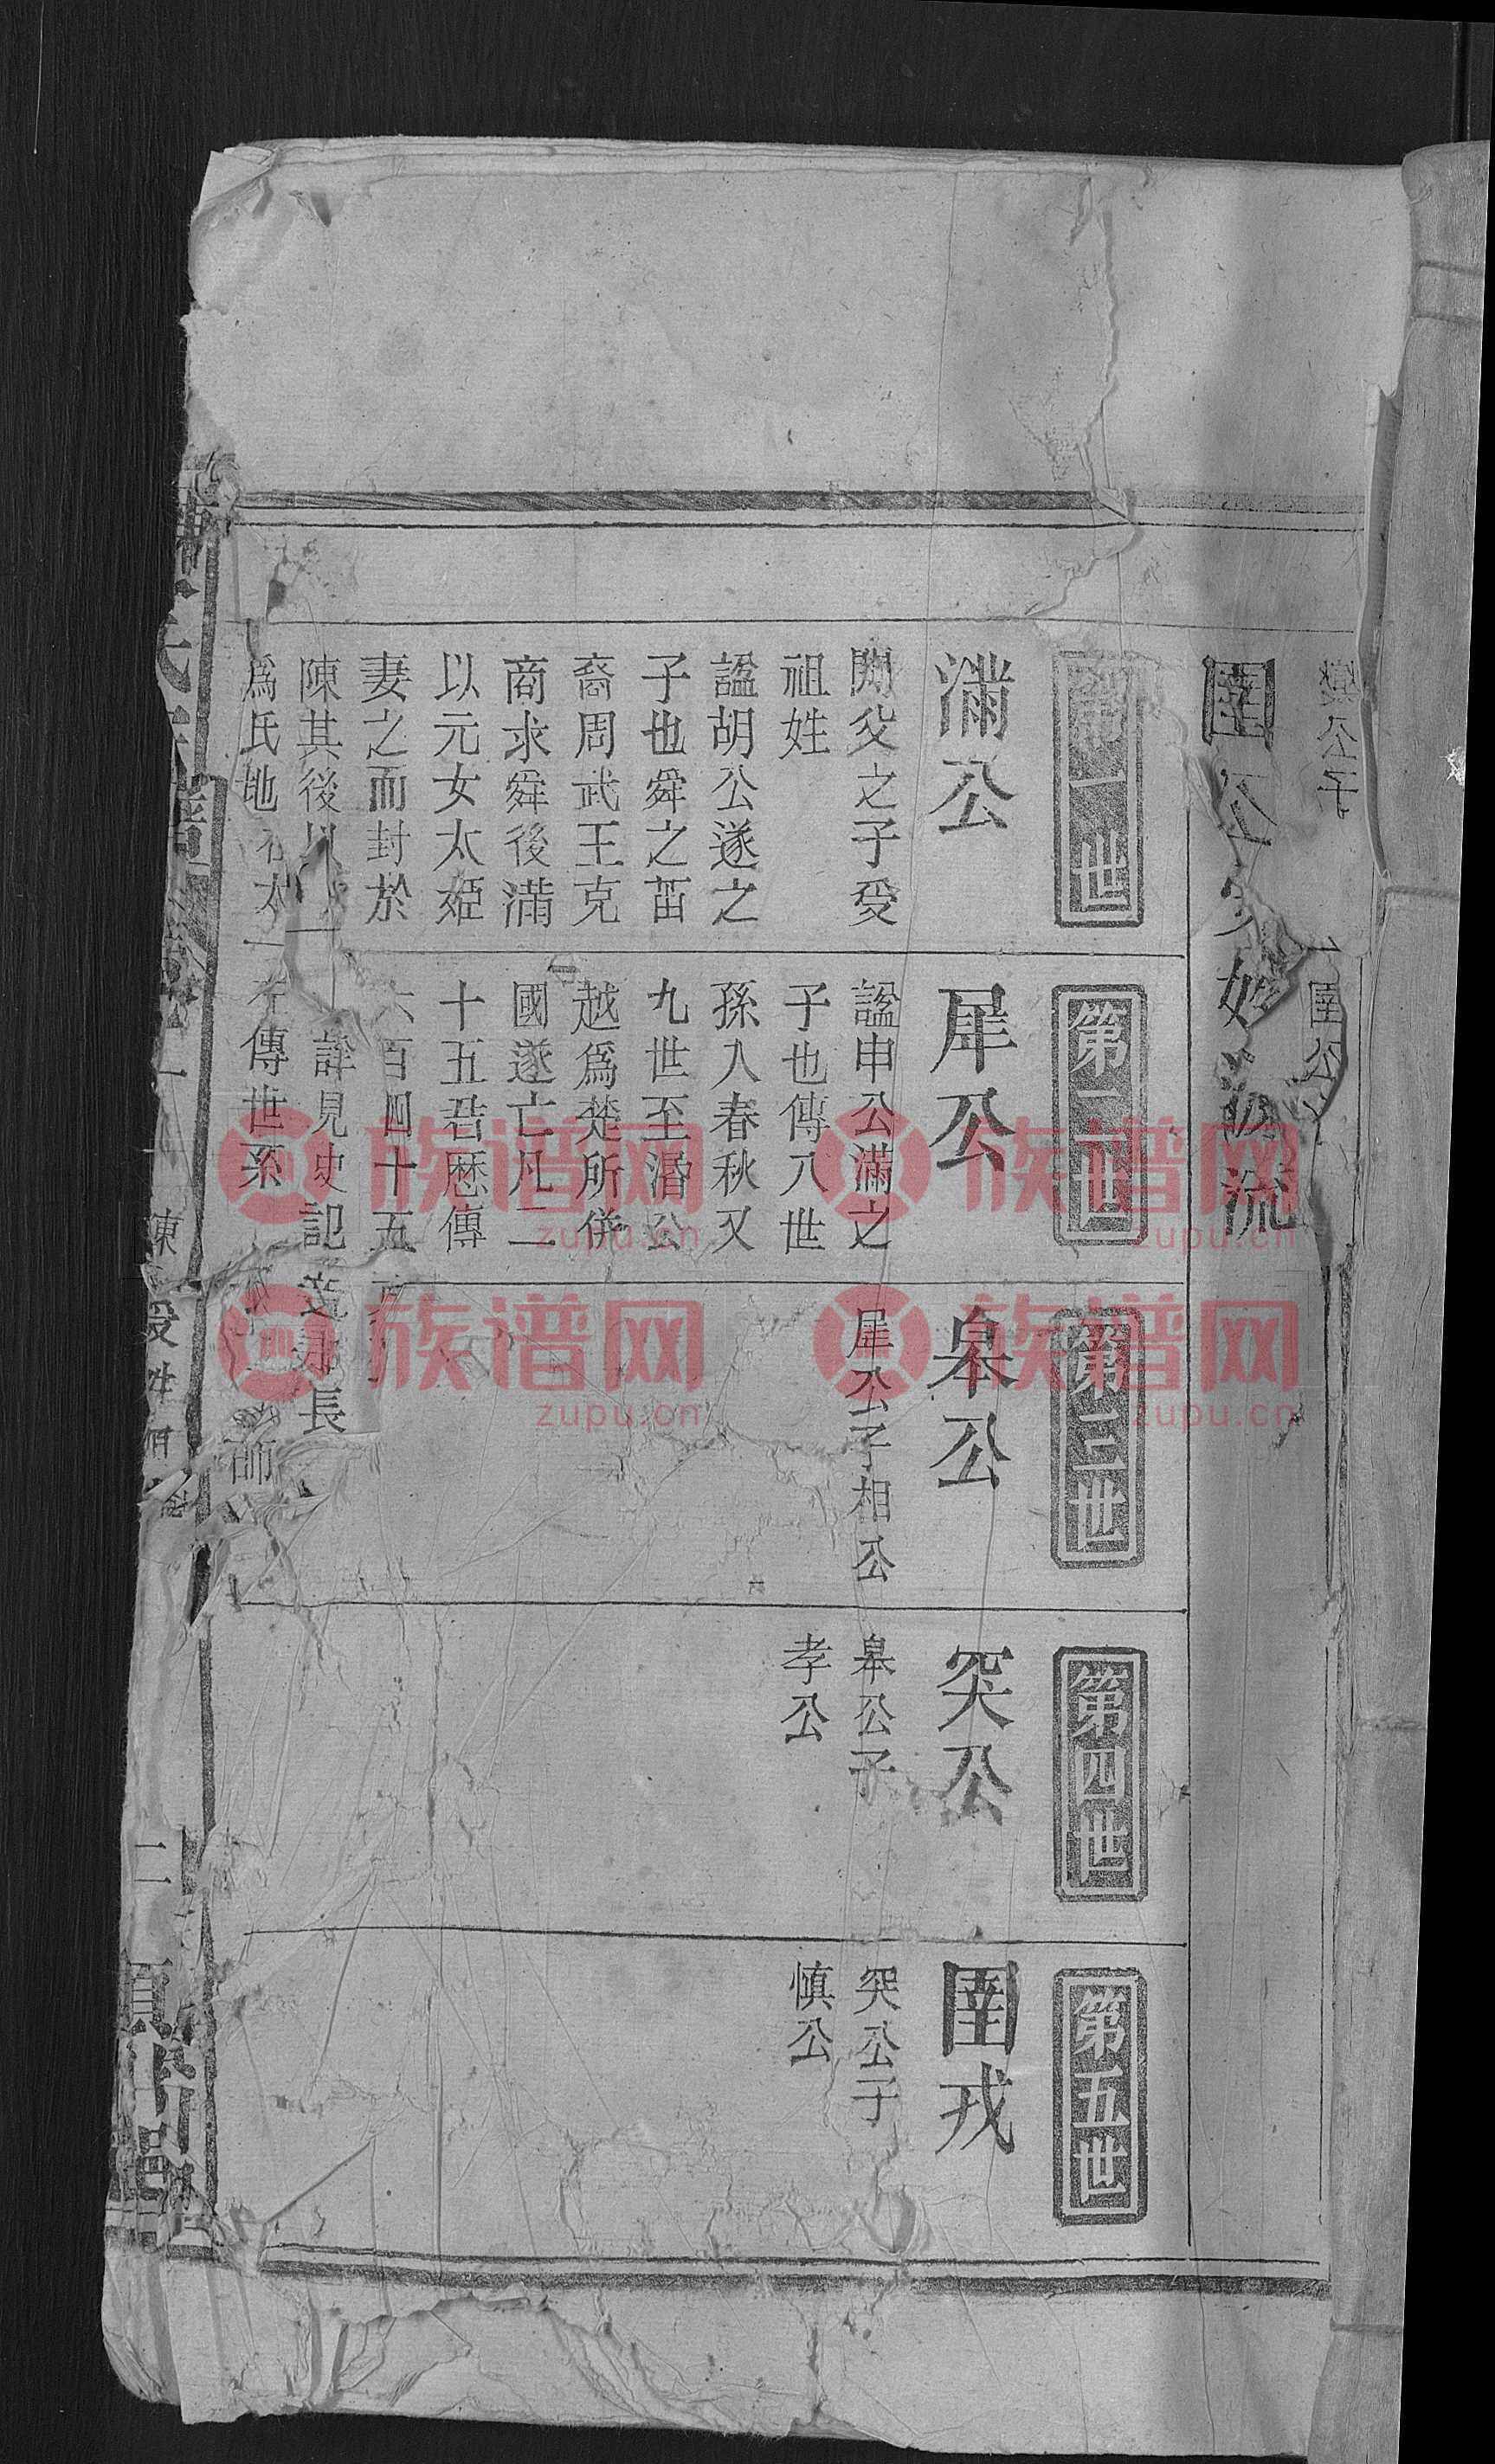 圉公
流
第一世
滿公
閼父之子受
祖姓
謚胡公遂之
子也舜之苗
裔周武王克
商求舜後滿
以元女太姬
妻之而封於
陳其後以
爲氏地
第二世
犀公
謚申公滿之
子也傳八世
孫入春秋又
九世至湣公
越爲楚所併
國遂亡凡二
十五君歷傳
六百四十五
詳見史記
傳世系
第三世
皋公
犀公子相公
長
師
第四世
突公
皋公子
孝公
第五世
圉戎
突公子
慎公
陳
受姓
二
族谱网
zupu.cn
族谱网
zupu.cn
族谱网
zupu.cn
族谱网
zupu.cn